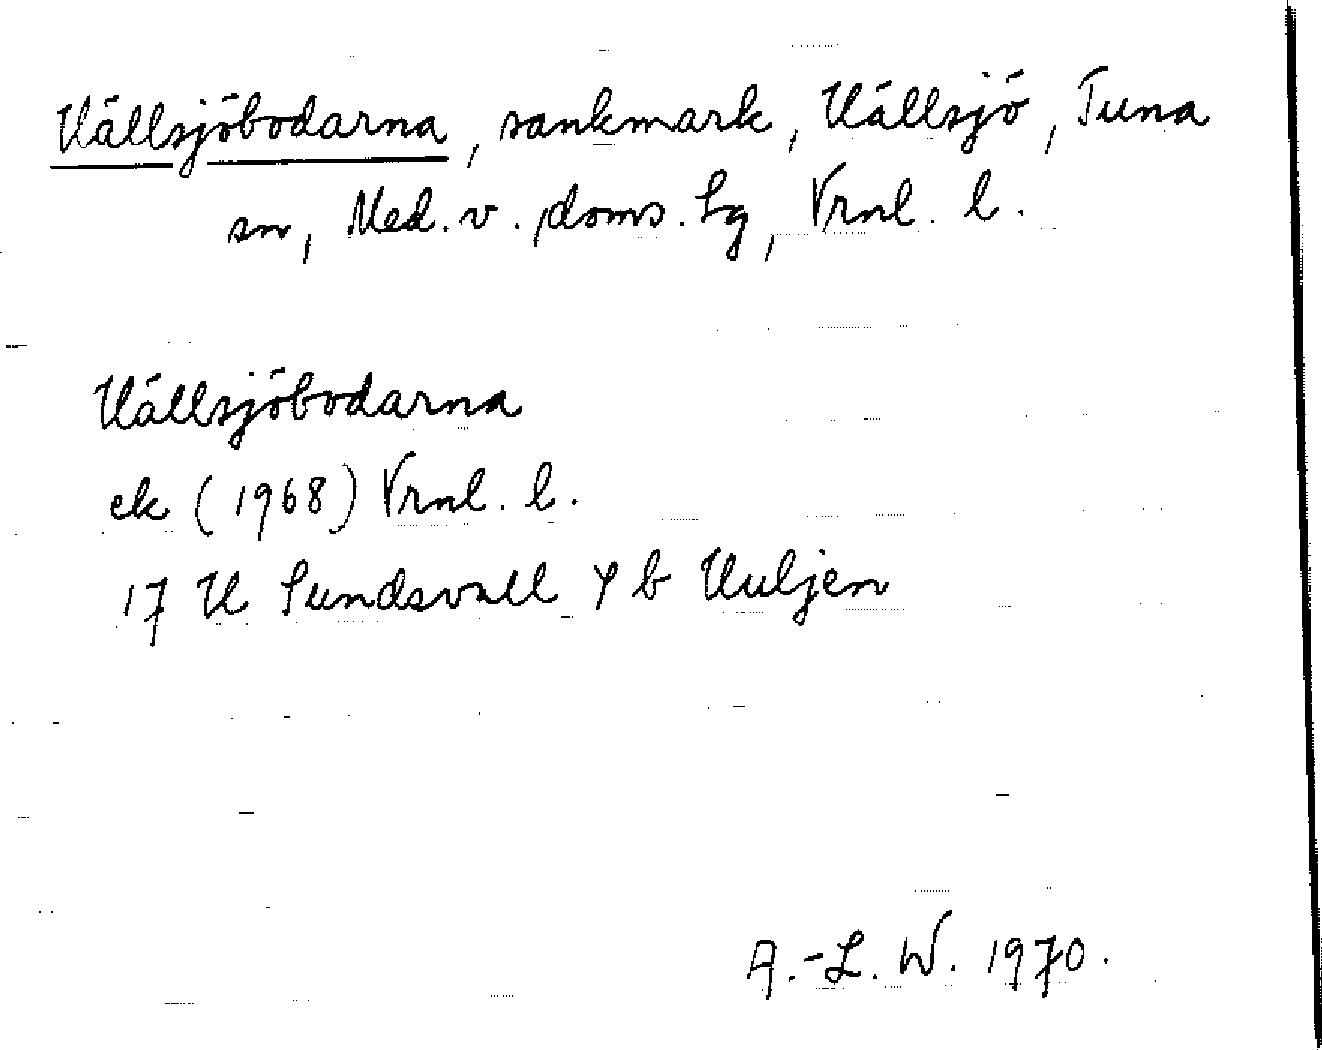 Hällsjöbodarna, sankmark, Hällsjö, Tuna
sn, Med. v. doms. tg, Vrnl. l.
Hällsjöbodarna
ek (1968) Vrnl. l.
17 H Sundsvall 4 b Huljen
A.-L. W. 1970.